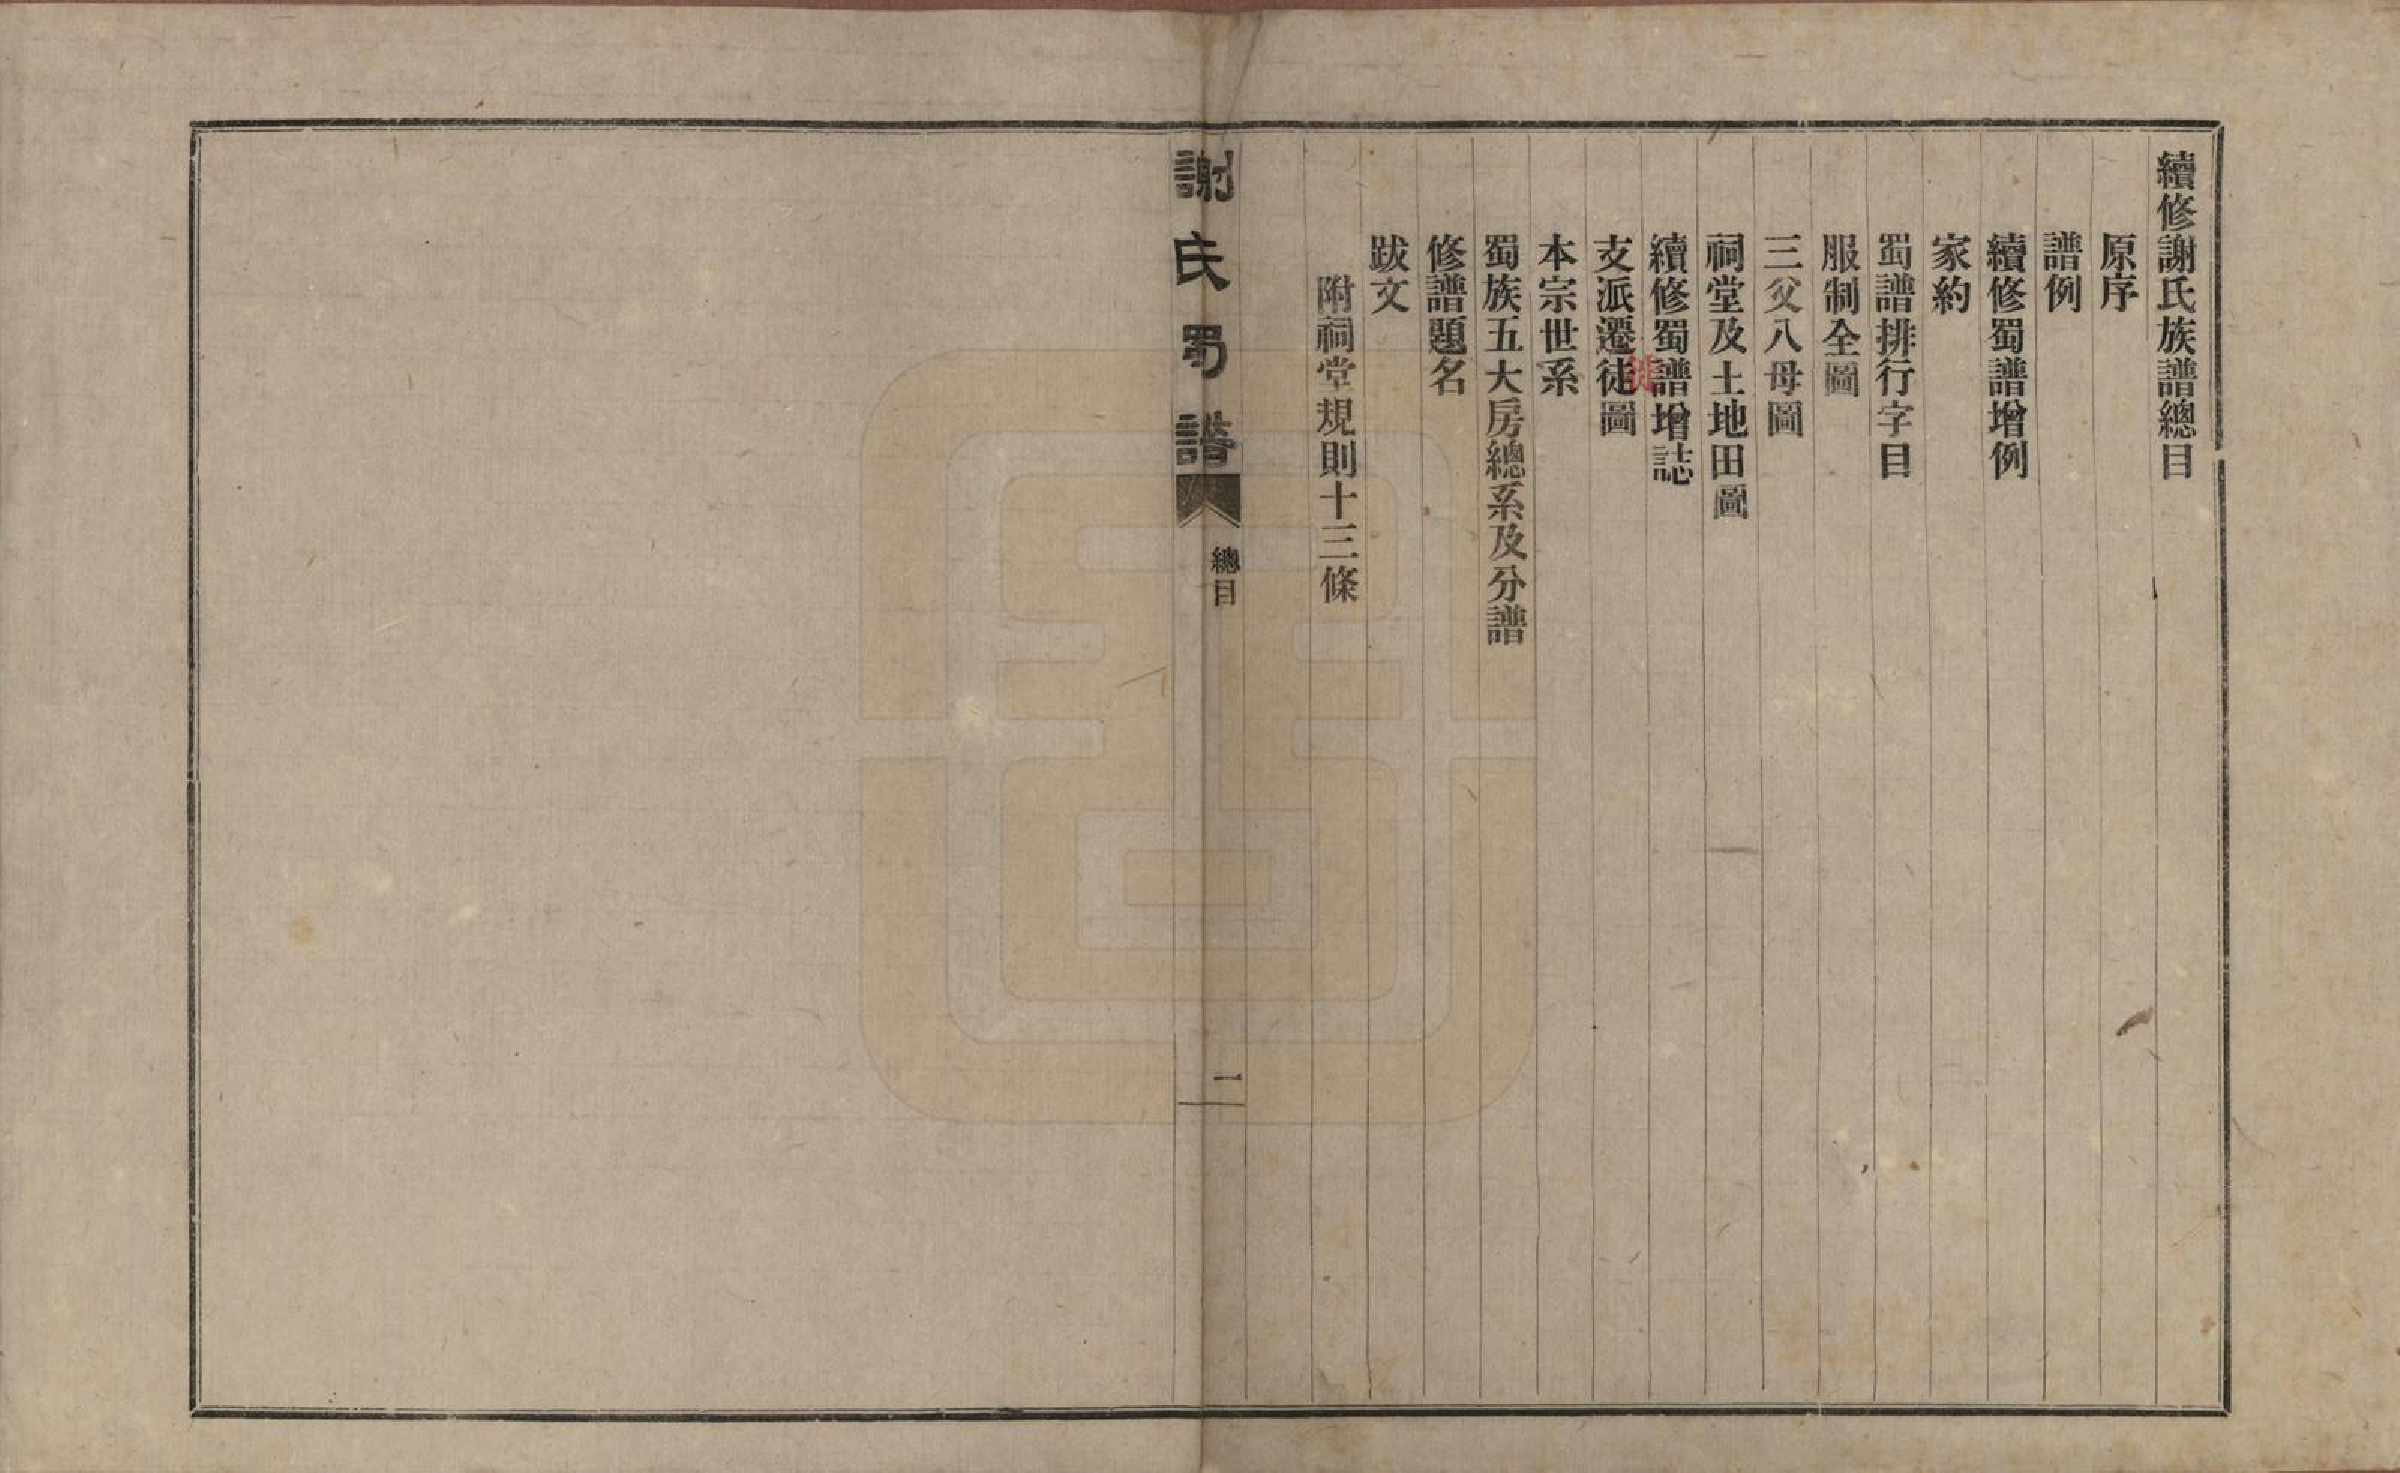 續修謝氏族譜總目
原序
譜例
續修蜀譜增例
家約
蜀譜排行字目
服制全圖
三父八母圖
祠堂及土地田圖
續修蜀譜增誌
支派遷徒圖
徙
本宗世系
蜀族五大房總系及分譜
修譜題名
跋文
附祠堂規則十三條
謝氏蜀譜
總目
一